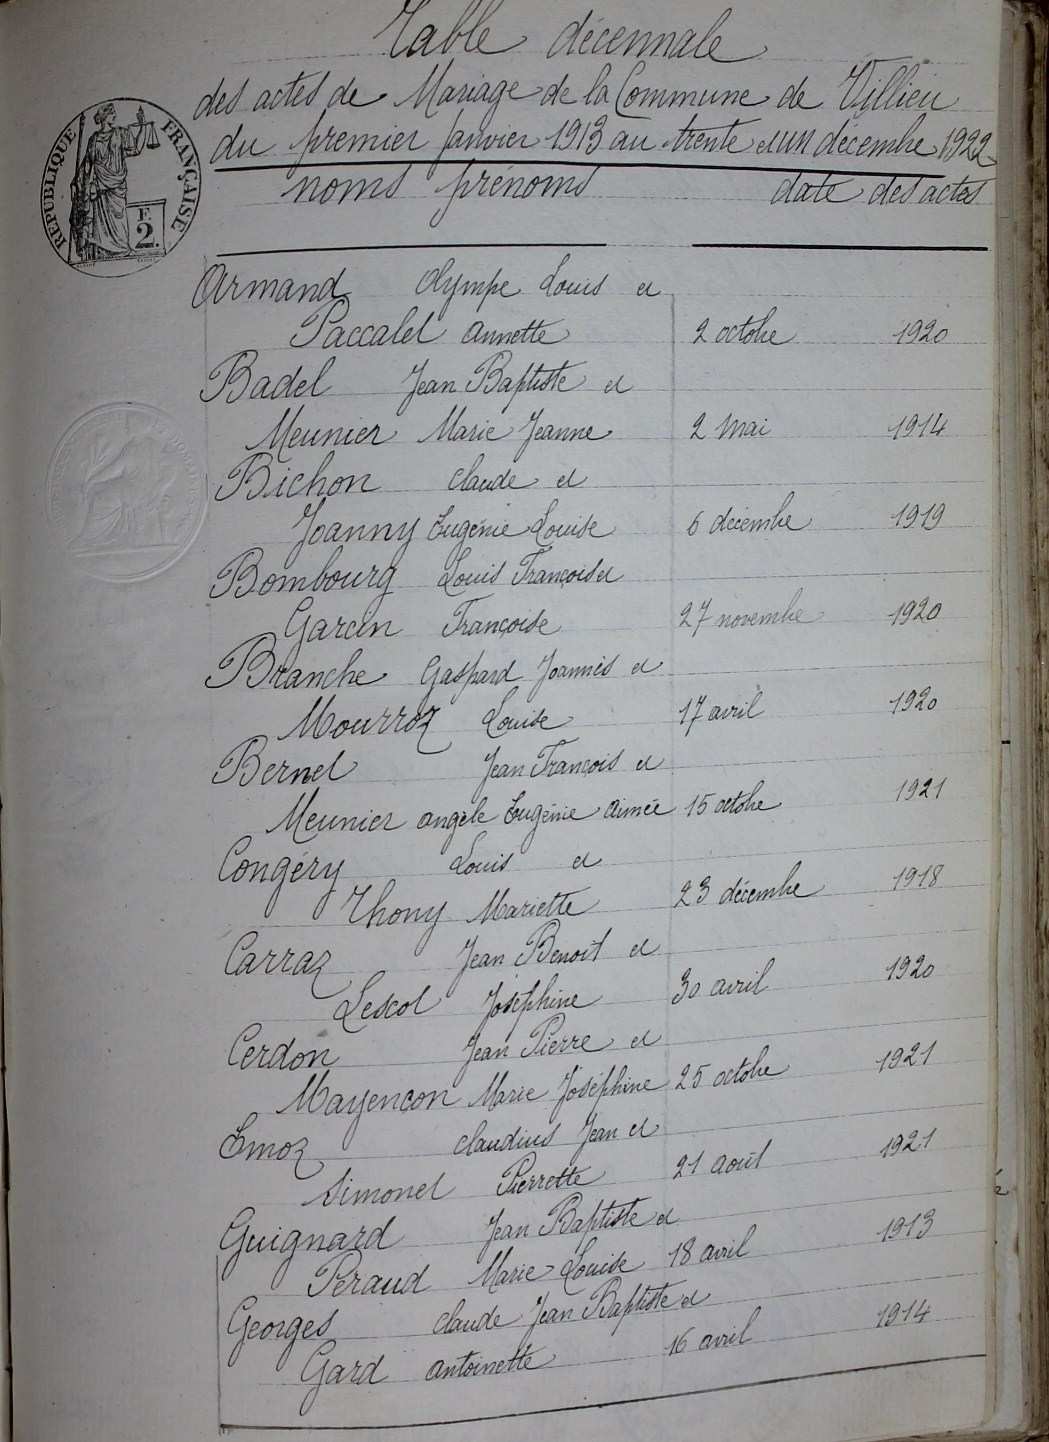 Table décennale
des actes de Mariage de la Commune de Villieu
du premier Janvier 1913 au trente et un décembre 1922
RÉPUBLIQUE FRANÇAISE
F.
2.
noms prénoms date des actes
Armand Olympe Louis et
Paccalet Annette 2 octobre 1920
Badel Jean Baptiste et
Meunier Marie Jeanne 2 Mai 1914
Bichon Claude et
Joanny Eugénie Louise 6 décembre 1919
Bombourg Louis François et
Garcin Françoise 27 novembre 1920
Branche Gaspard Joannès et
Mourroz Louise 17 avril 1920
Bernet Jean François et
Meunier Angèle Eugénie Aimée 15 octobre 1921
Congéry Louis et
Thony Mariette 23 décembre 1918
Carraz Jean Benoit et
Lescot Joséphine 30 avril 1920
Cerdon Jean Pierre et
Mayencon Marie Joséphine 25 octobre 1921
Emoz Claudius Jean et
Simonet Pierrette 21 août 1921
Guignard Jean Baptiste et
Peraud Marie Louise 18 avril 1913
Georges Claude Jean Baptiste et
Gard Antoinette 16 avril 1914